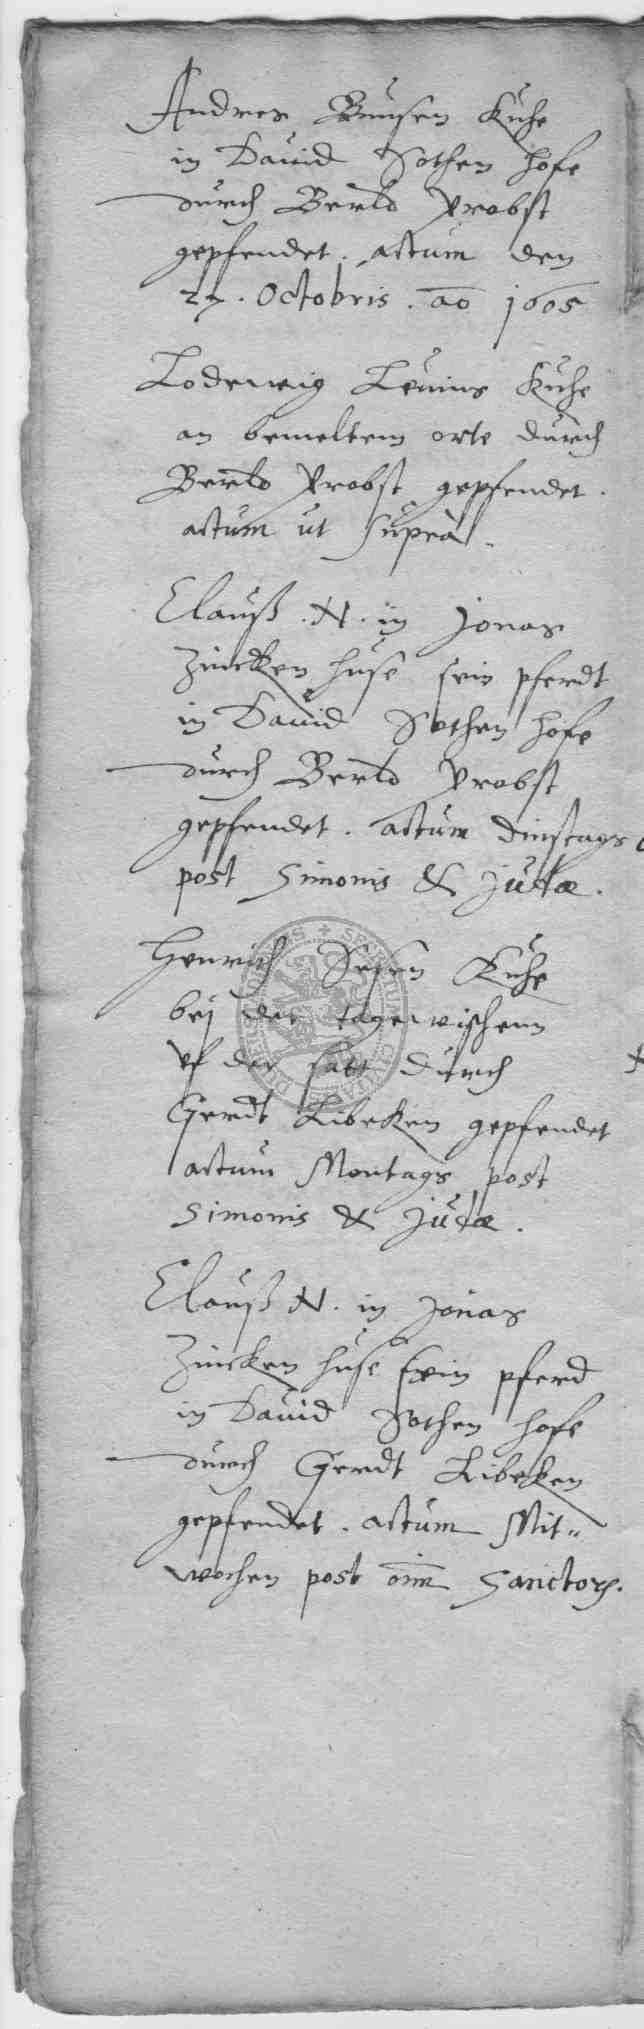 Andres Bunsen Kuhe
in Dauid Sothen hofe
durch Berld Probst
gepfendet. actum den
27. Octobris. ao 1605
Lodewig Leuins Kuhe
an bemeltem orte durch
Berld Probst gepfendet.
actum ut supra.
Clauß .N. in Jonas
Zincken huse sein pferdt
in Dauid Sothen hofe
durch Berld Probst
gepfendet. actum Dinstags
post Simonis & Judæ.
Henrich Kuhe
bej der
vf der durch
Gerdt Libeken gepfendet
actum Montags post
Simonis & Judæ.
Clauß N. in Jonas
Zincken huse sein pferd
in Dauid Sothen hofe
durch Gerdt Libeken
gepfendet. actum Mit-
wochen post oim Sanctor.